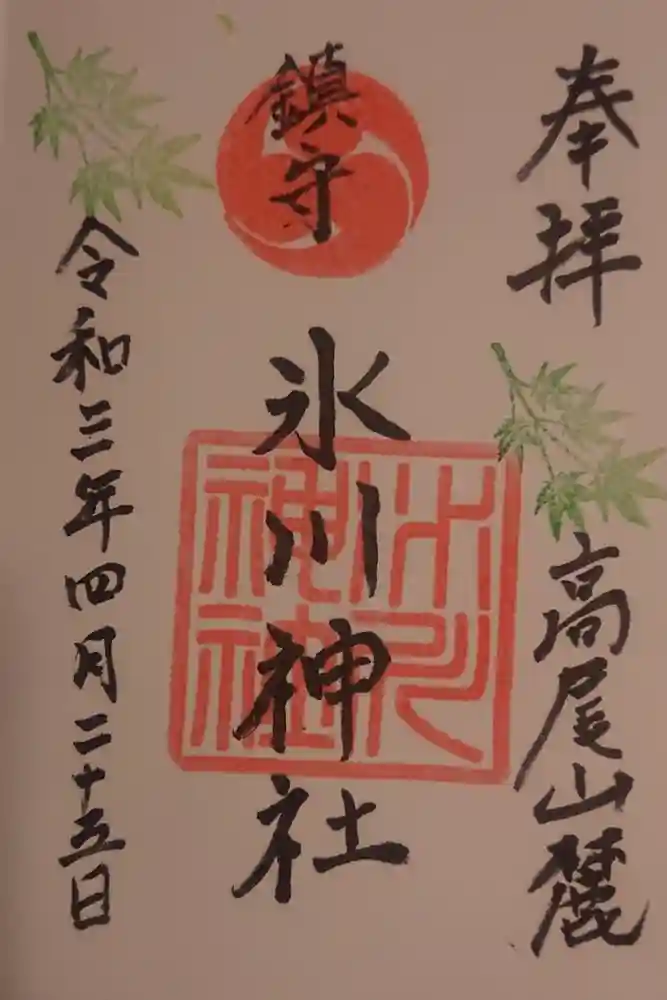 奉拝
高尾山麓
鎮守
氷川神社
氷川神社
令和三年四月二十五日